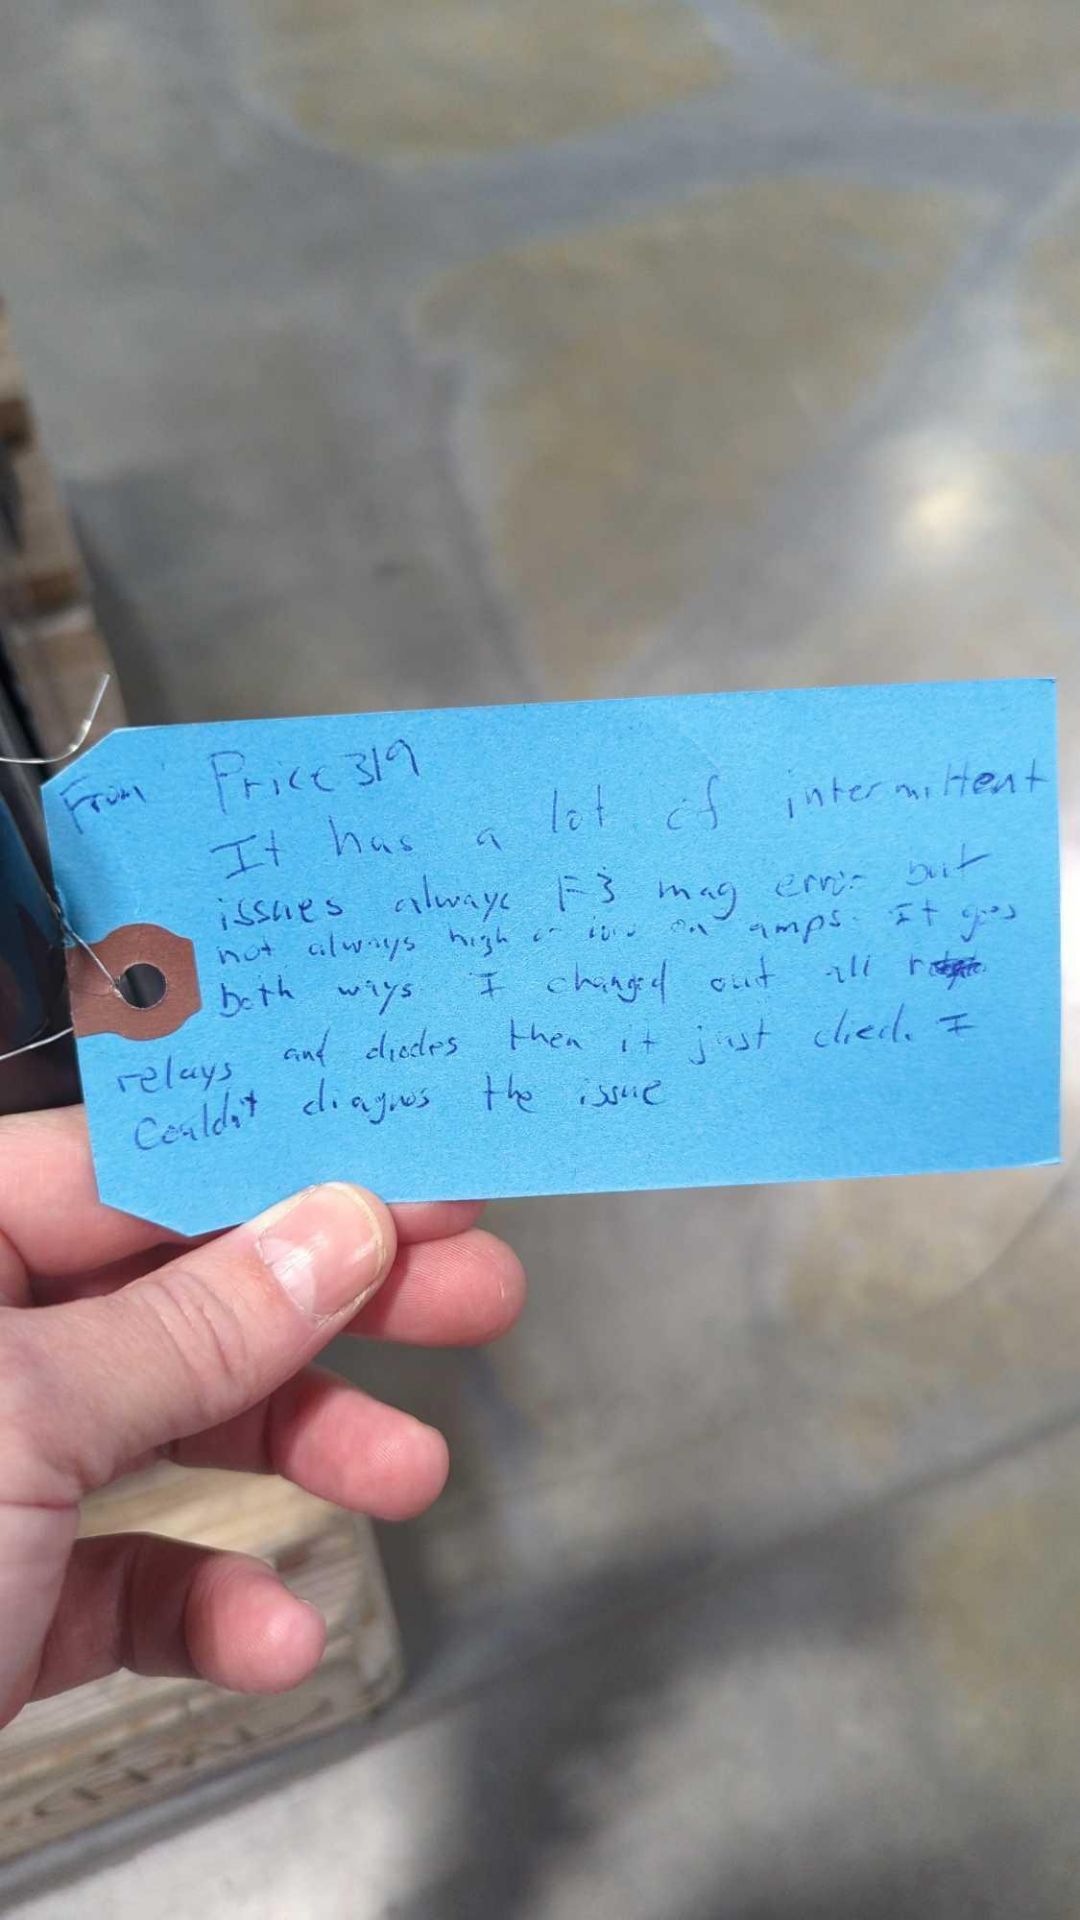 From Price 319
It has a lot of intermittent
issues always F3 mag error but
not always high or low on amps. It goes
both ways. I changed out all
relays and diodes then it just died. I
Couldn't diagnos the issue